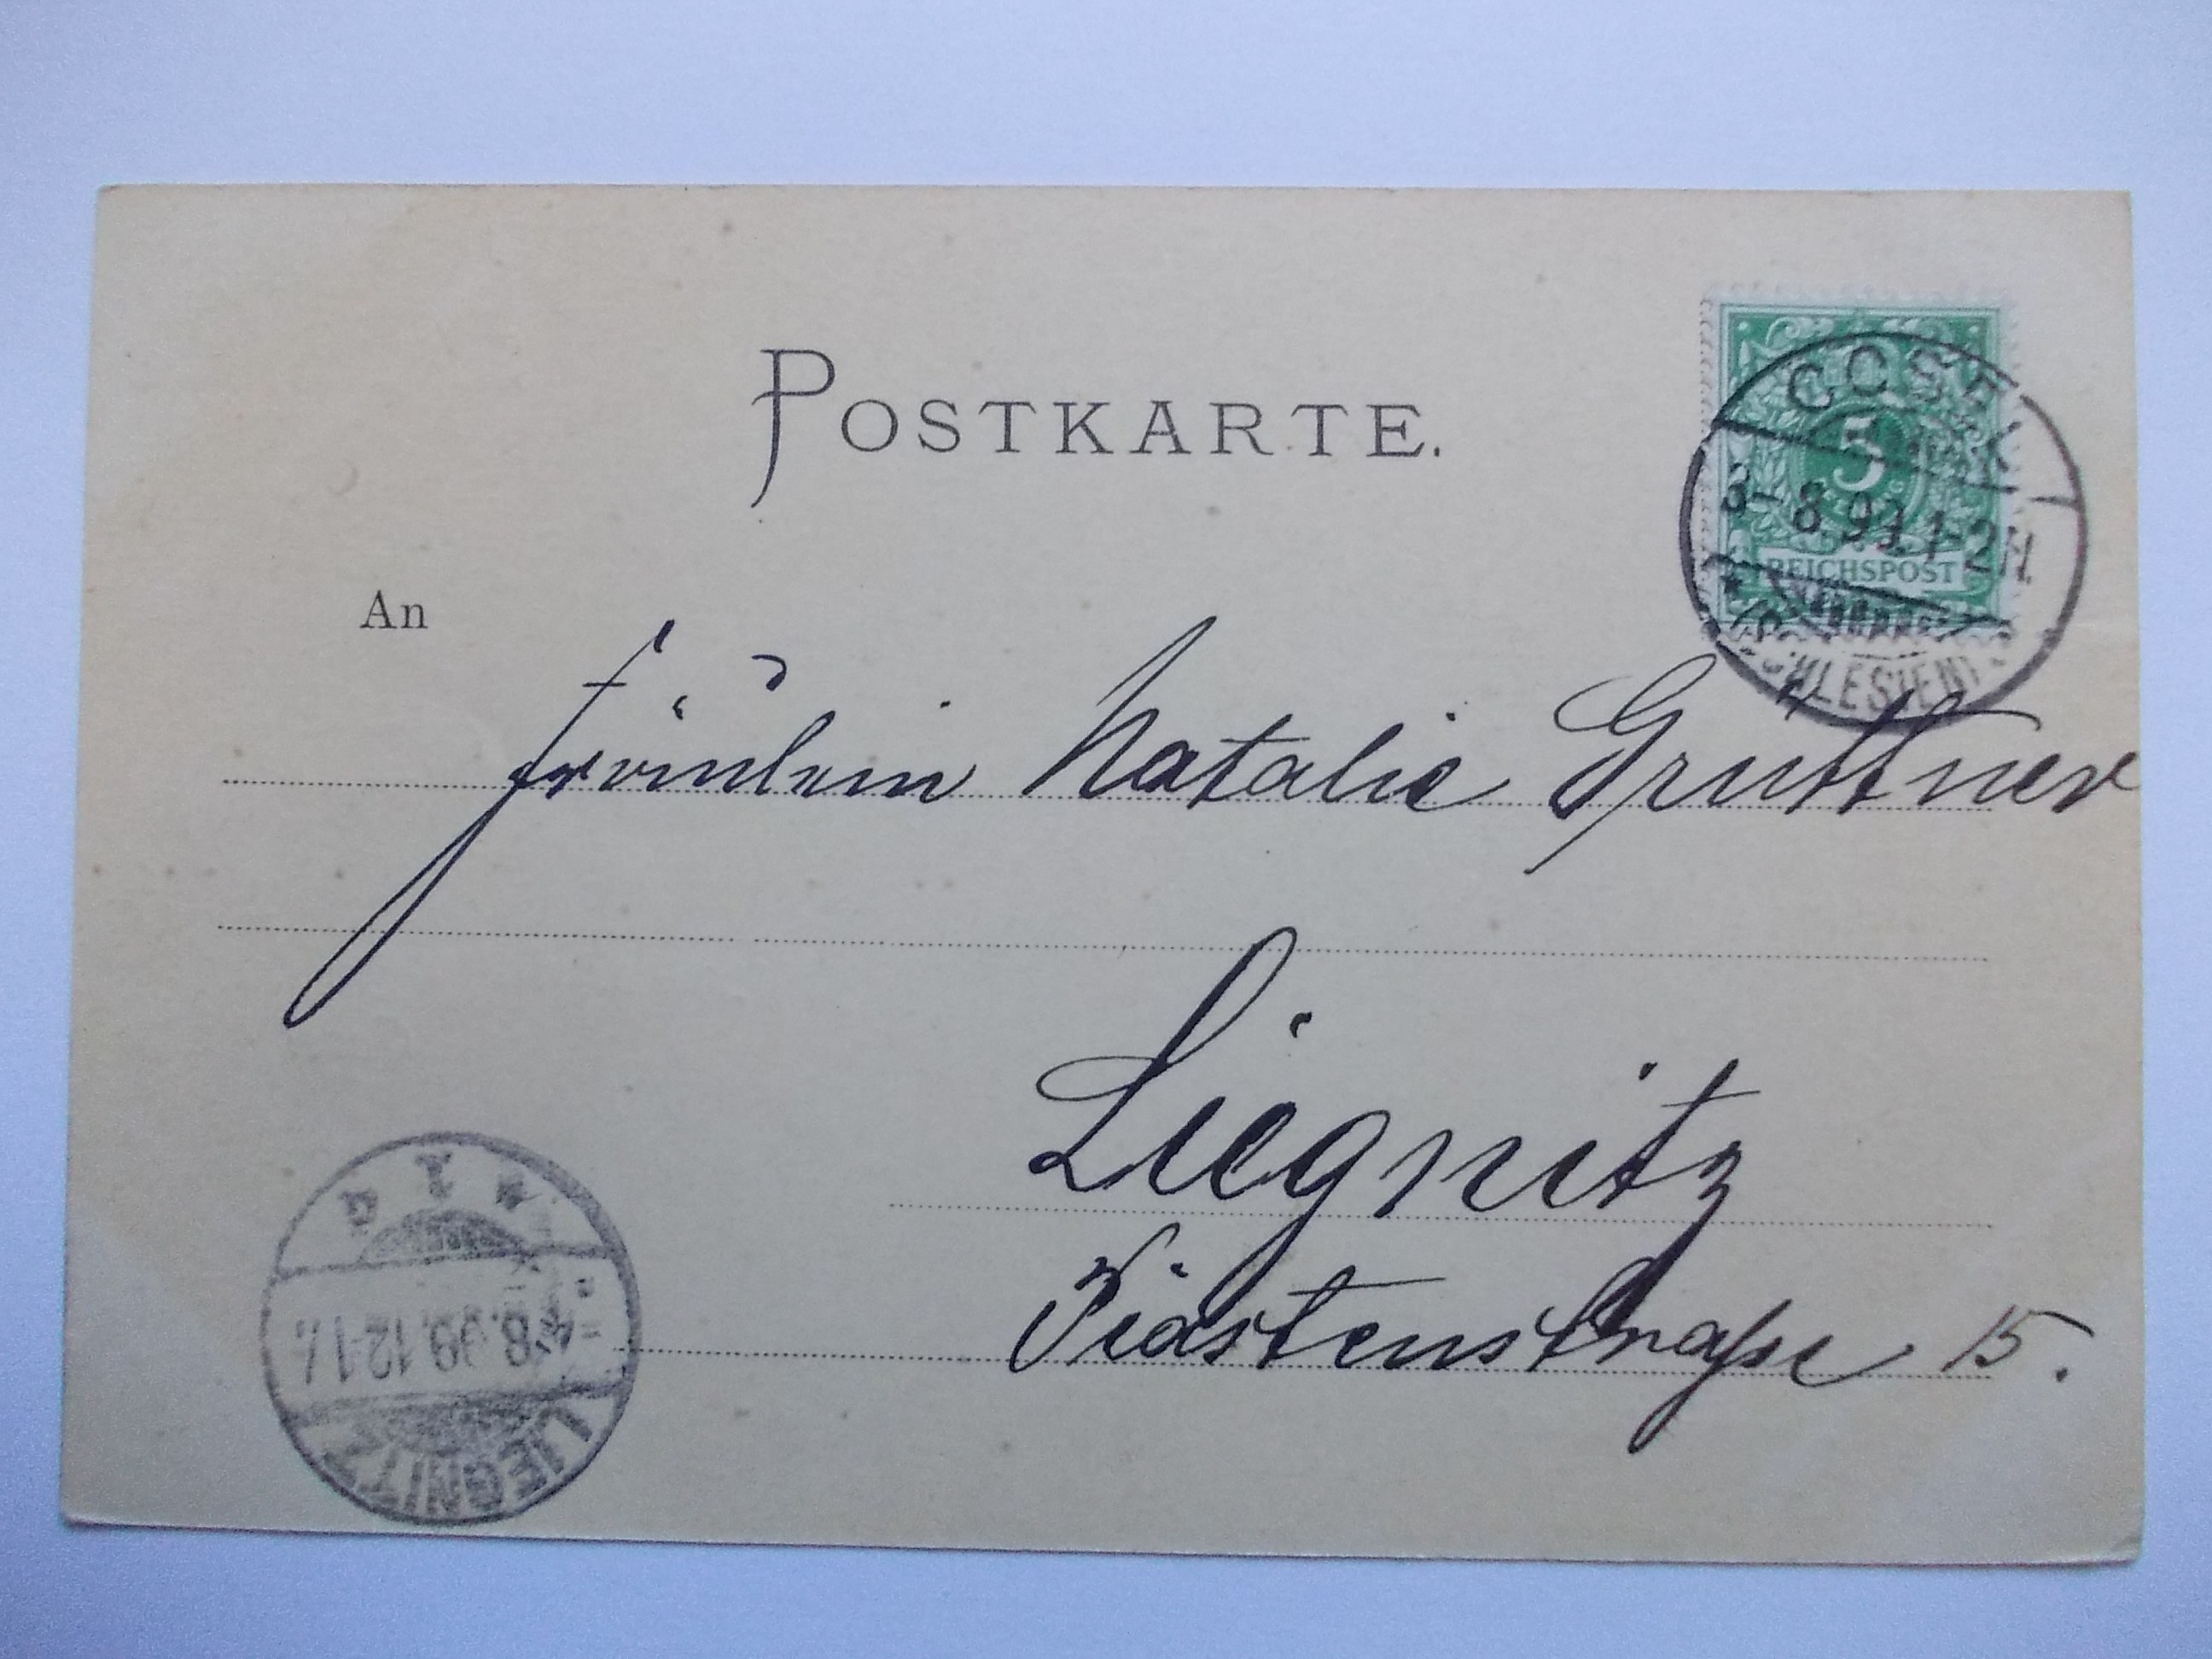 POSTKARTE.
COSEL
5
3-8.99.1-2N
REICHSPOST
(SCHLESIEN)
An
Fräulein Natalie Grüttner
Liegnitz
Piastenstraße 15.
* 1 a
8.99.12-1
LIEGNITZ